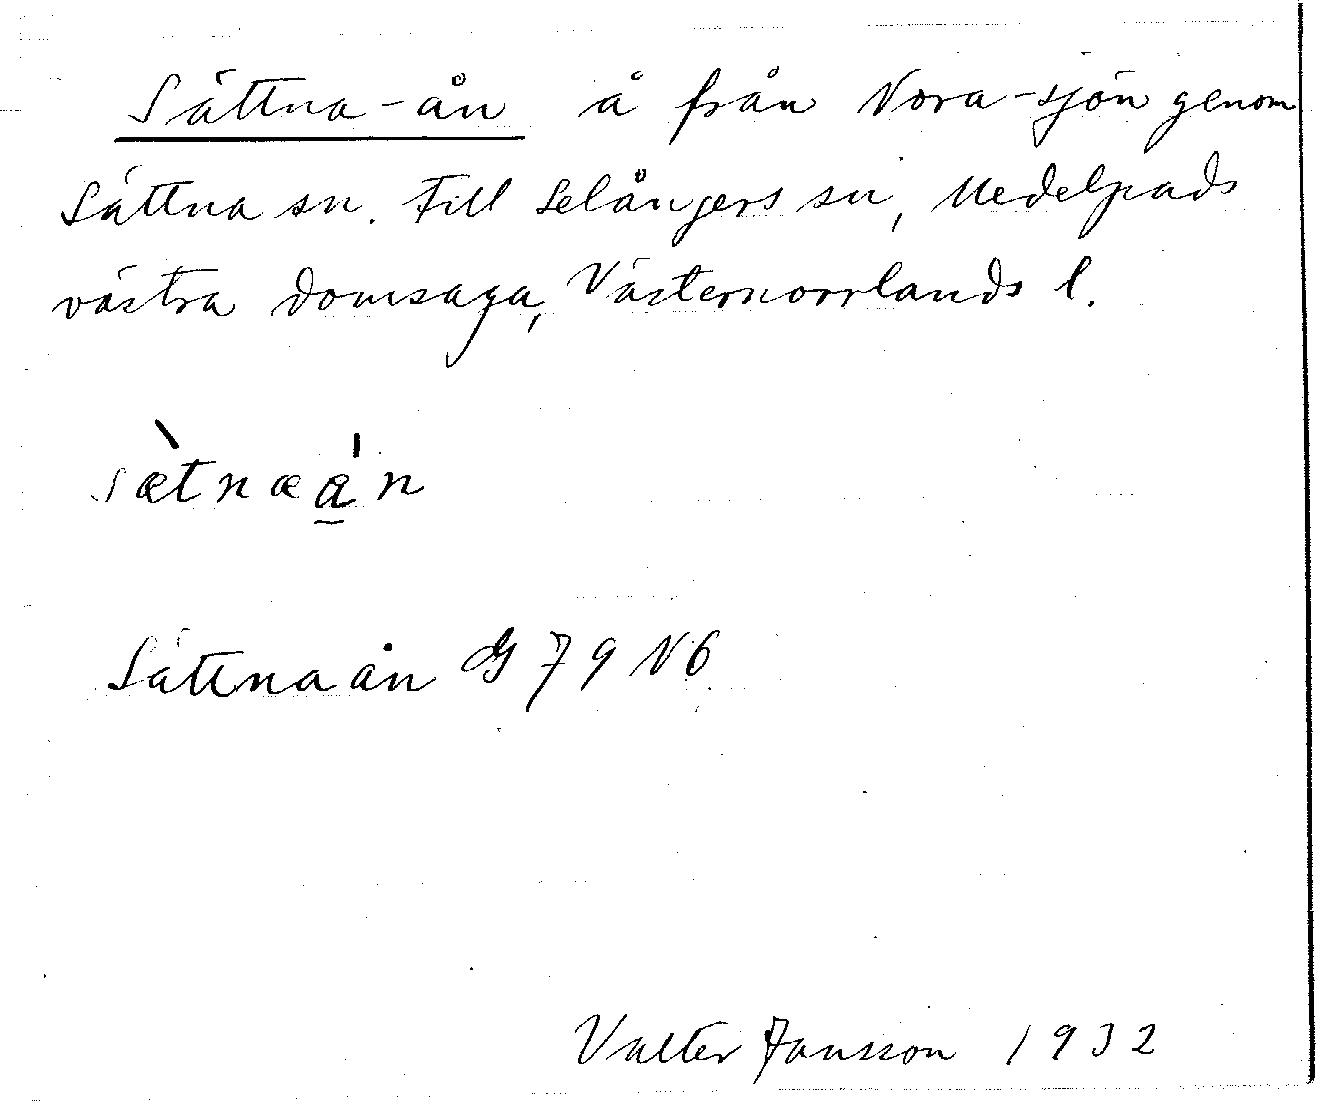 Sättna-ån å från Nora-sjön genom
Sättna sn. Till Selångers sn, Medelpads
västra domsaga, Västernorrlands l.
sætnæån
Sättnaån G 79 N6
Valter Jansson 1932